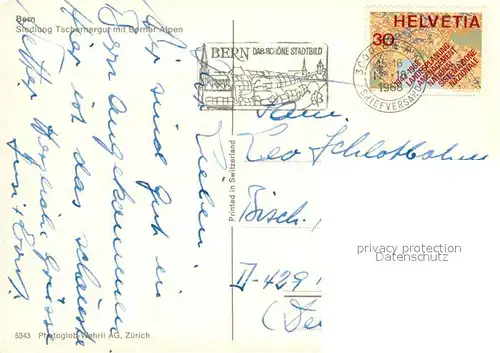 Bern
Siedlung Tscharnergut mit Berner Alpen
Ihr Lieben
Wir sind gut in
Bern angekommen
Hier ist das schönste
Wetter Herzliche Grüsse
BERN DAS SCHÖNE STADTBILD
HELVETIA
30
3000 BERN
15-16
1968
BRIEFVERSAND
Fam.
Leo Schlotbohm
Bisch
D-429
(De
Printed in Switzerland
privacy protection
Datenschutz
5343 Photoglob-Wehrli AG, Zürich